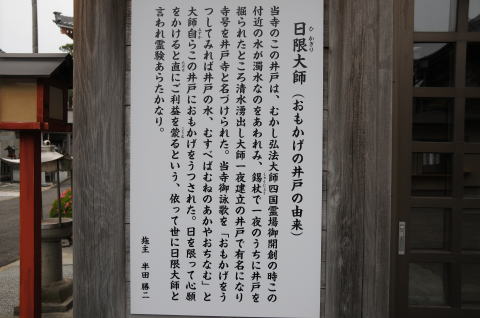 日限大師（おもかげの井戸の由来）
ひ かぎり
当寺のこの井戸は、むかし弘法大師四国霊場御開創の時この
付近の水が濁水なのをあわれみ、錫杖で一夜のうちに井戸を
掘られたところ清水湧出し大師一夜建立の井戸で有名になり
寺号を井戸寺と名づけられた。当寺御詠歌を「おもかげをう
つしてみれば井戸の水、むすべばむねのあかやおちなむ」と
大師自らこの井戸におもかげをうつされた。日を限って心願
をかけると直にご利益を蒙るという、依って世に日限大師と
言われ霊験あらたかなり。
施主 半田 勝二